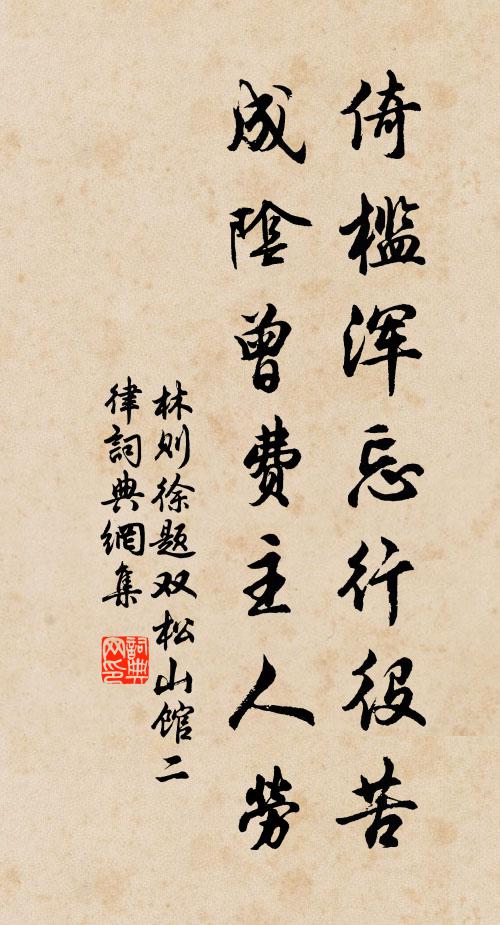 倚檻浑忘行役苦
成陰曾费主人勞
林则徐题双松山馆二
律詞典網集
詞典网印